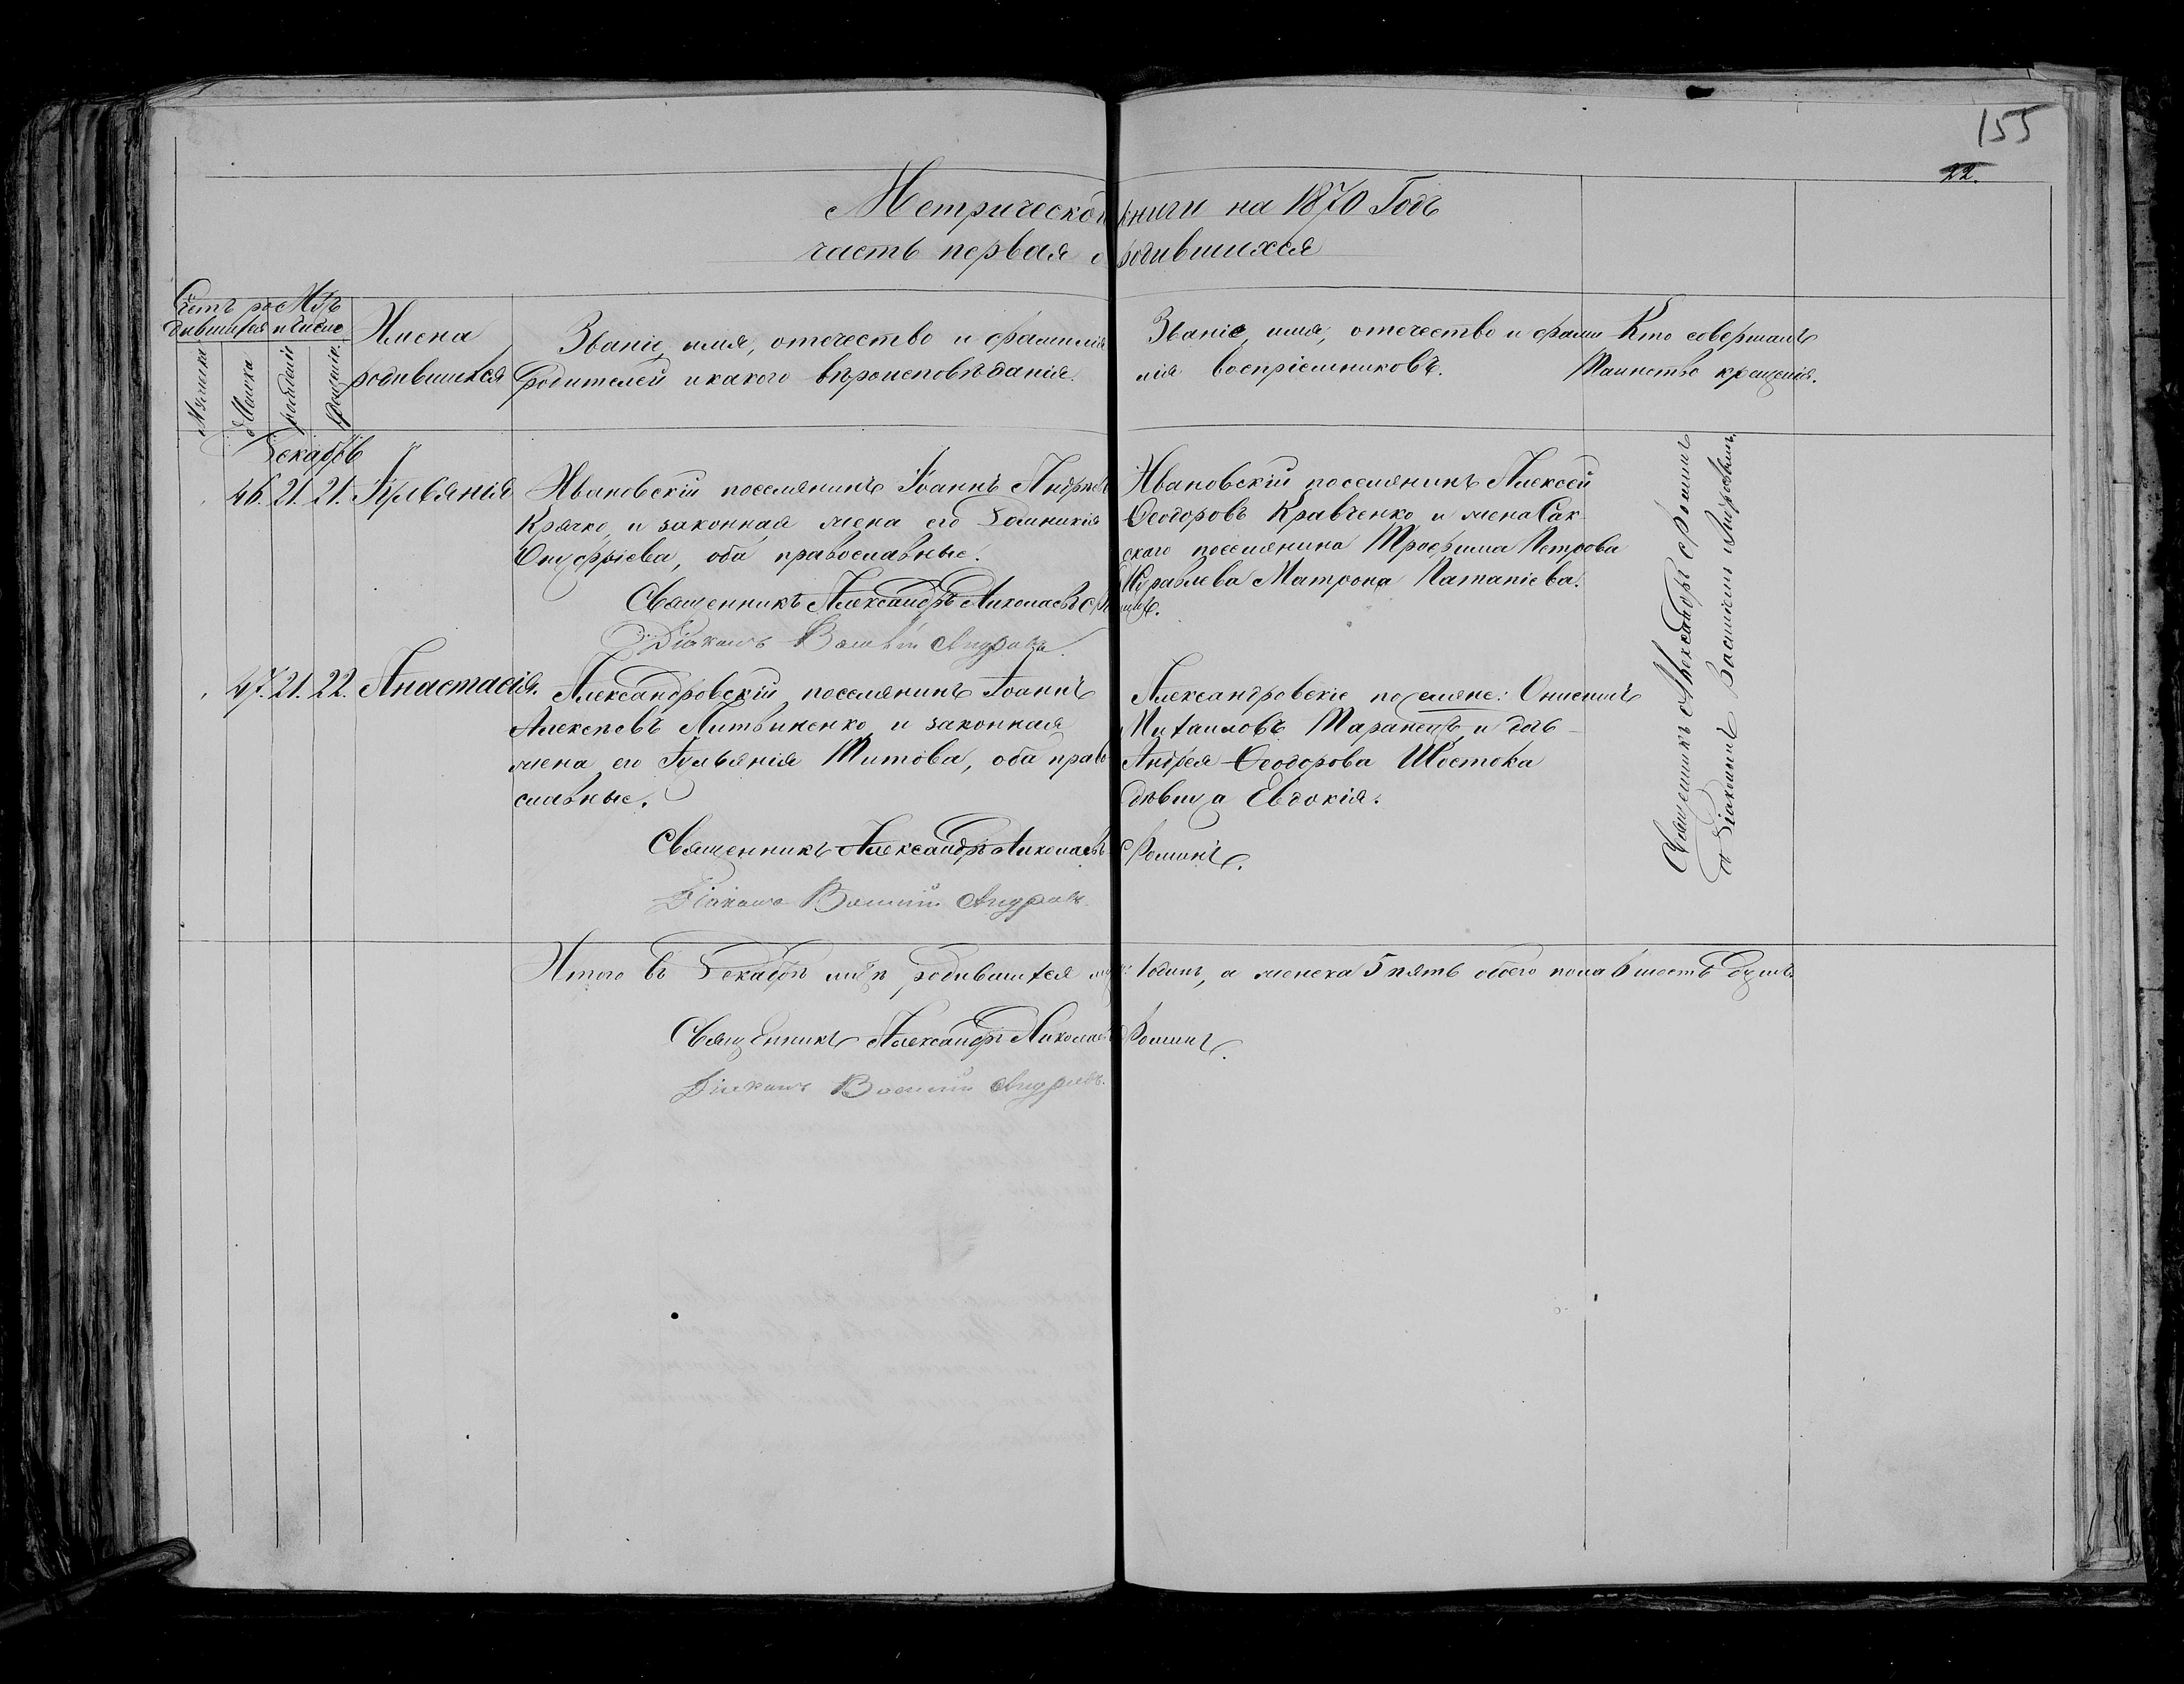 155
22.
Метрической книги на 1870 Годъ
часть первая о родившихся
Счетъ ро
дившихся
Мцъ
и число
Мужеска
Женска
рожденія
крещенія
Имена
родившихся
Званіе, имя, отечество и фамилія
родителей и какого вѣроисповѣданія.
Званіе, имя, отечество и фами
лія воспріемниковъ.
Кто совершалъ
Таинство крещенія.
Декабрь
46. 21. 21. Іуліанія
Ивановскій поселянинъ Іоаннъ Андреевъ
Крячко и законная жена его Домникія
Онуфріева, оба православные.
Священникъ Александръ Николаевъ Фоминъ.
Діаконъ Василій Андреевъ.
Ивановскій поселянинъ Алексей
Ѳеодоровъ Кравченко и жена Сак
скаго поселянина Трофима Петрова
Журавлева Матрона Патапіева.
47. 21. 22. Анастасія.
Александровскій поселянинъ Іоаннъ
Алексѣевъ Литвиненко и законная
жена его Іуліанія Титова, оба право
славные.
Священникъ Александръ Николаевъ Фоминъ.
Діаконъ Василій Андреевъ.
Александровскіе поселяне: Онисимъ
Михаиловъ Таранецъ и дочь
Андрея Ѳеодорова Шостока
дѣвица Евдокія.
Священникъ Александръ Фоминъ
съ Діакономъ Василіемъ Андреевымъ.
Итого въ Декабрѣ мцѣ родившихся муж: 1 одинъ, а женска 5 пять обоего пола 6 шесть душъ.
Священникъ Александръ Николаевъ Фоминъ.
Діаконъ Василій Андреевъ.